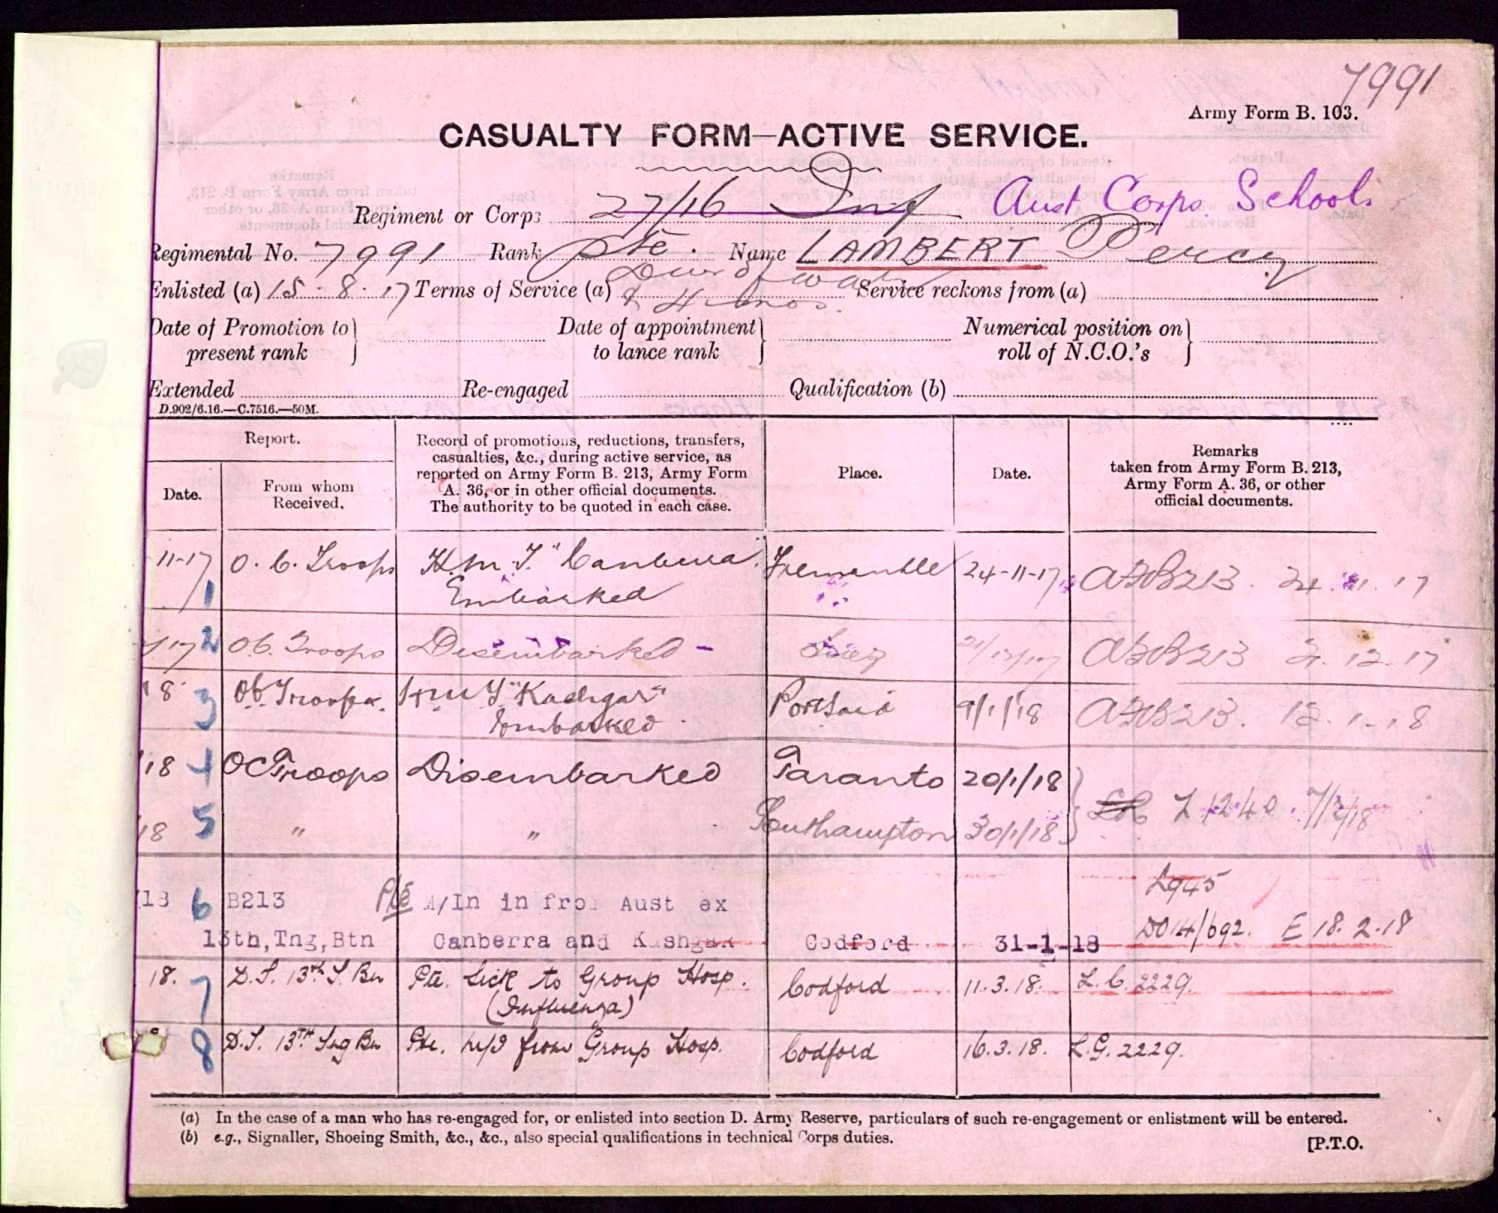 7991
Army Form B. 103.
CASUALTY FORM—ACTIVE SERVICE.
Regiment or Corps 27/16 Inf Aust Corps Schools
Regimental No. 7991 Rank Pte. Name LAMBERT Percy
Enlisted (a) 15-8-17 Terms of Service (a) Dur of war & 4 mos. Service reckons from (a)
Date of Promotion to present rank } Date of appointment to lance rank } Numerical position on roll of N.C.O.'s }
Extended Re-engaged Qualification (b)
D.902/6.16.—C.7516.—50M.
Report.
Date.
From whom Received.
Record of promotions, reductions, transfers,
casualties, &c., during active service, as
reported on Army Form B. 213, Army Form
A. 36, or in other official documents.
The authority to be quoted in each case.
Place.
Date.
Remarks
taken from Army Form B. 213,
Army Form A. 36, or other
official documents.
-11-17 O.C. Troops H.M.T. "Canberra" Fremantle 24-11-17 AFB213. 24.11.17
1 Embarked
17 2 OC. Troops Disembarked - Suez 21/12/17 AFB213 21.12.17
18 3 OC Troops. HMT "Kashgar" Port Said 9/1/18 AFB213. 12.1.18
Embarked
/18 4 OC Troops Disembarked Taranto 20/1/18
/18 5 " " Southampton 30/1/18 } L 1240. 7/2/18
/18 6 B213 Pte M/In in from Aust ex L945
13th, Tng, Btn Canberra and Kashgar Codford 31-1-18 DO14/692. E 18.2.18
18. 7 D.S. 13th T. Bn Pte. Sick to Group Hosp. Codford 11.3.18. L.G. 2229.
(Influenza)
8 D.S. 13TH Tng Bn Pte. m/i from Group Hosp. Codford 16.3.18. L.G. 2229.
(a) In the case of a man who has re-engaged for, or enlisted into section D. Army Reserve, particulars of such re-engagement or enlistment will be entered.
(b) e.g., Signaller, Shoeing Smith, &c., &c., also special qualifications in technical Corps duties.
[P.T.O.